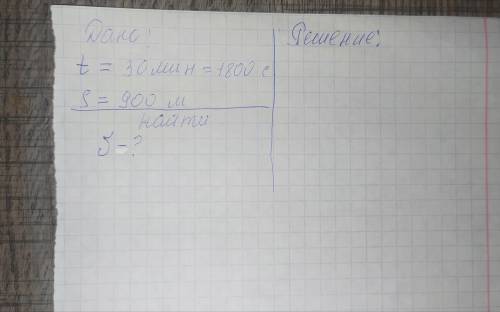 Дано:
t = 30 мин = 1800 с
S = 900 м
найти
J - ?
Решение: